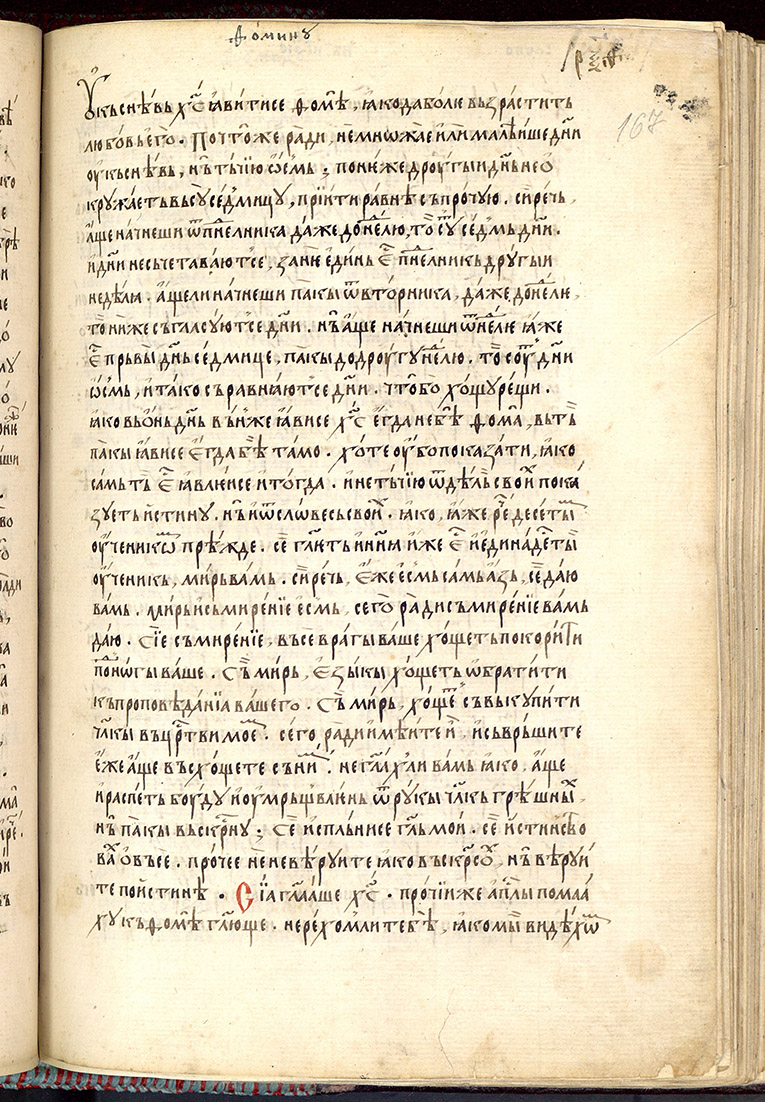 Фоминꙋ
рѯз
167
Ѹкъснѣвь х҃с ꙗвитисе ѳомѣ, ꙗкода болю възрастить
любовь ѥго. Почто же ради, немножае или малѣише дн҃и
оукъснѣвь, нь тъчїю ѡсмь; понѥже дроугыи дн҃ь нео
кружаѥть въсꙋ седмицꙋ, прїити равнѣ съ прочꙋю. сирѣчь,
аще начнеши ѿ пн҃елника даже до нѥ҃лю, то сꙋ седмь дн҃и.
и дн҃и несъчетаваютсе, занѥ единь ѥ҃ пн҃елникь дрꙋгыи
недѣлꙗ. аще ли начнеши пакы ѿ вторника, даже до нѥ҃лѥ,
то ниже съгласꙋютсе дн҃и. нь аще начнеши ѿ нѥ҃лѥ ꙗже
ѥ҃ прьвы дн҃ь седмице, пакы до дроугꙋ нѥ҃лю. то соу дн҃и
ѡсмь, и тако съравнꙗютсе дн҃и. что бо хощꙋ рещи.
ꙗко въ онь дн҃ь вь нже ꙗвисе х҃с ѥгда не бѣ ѳома, вь тъ
пакы ꙗвисе ѥгда бѣ тамо. хоте оубо показати, ꙗко
самь тъ ѥ҃ ꙗвлѥисе и тогда. и не тъчїю ѿ дѣль свои пока
зꙋѥть истинꙋ. нь и ѿ словесь свои. ꙗко, ꙗже рѥ҃ десетьм
оученикѡм прѣжде. се гл҃ть и нн҃ꙗ иже ѥ҃ и единадесты
оученикь, мирь вамь. сирѣчь, ѥже ѥсмь самь азь, се даю
вамь. мирь и съмирѥнїе ѥсмь, сего ради съмирѥнїе вамь
даю. Сїе съмирѥнїе, въсе врагы ваше хощеть покорити
по ногы ваше. Съ мирь, ѥзыкы хощеть ѡбратити
къ проповѣданїа вашего. Съ мирь, хощеть съвькꙋпити
чл҃кы въ цр҃тви моѥм. сего ради имѣите и, и съврьшите
ѥже аще въсхощете съ ним. не гл҃ах ли вамь ꙗко, аще
и распеть боудꙋ и оумрьщвлѥнь ѿ рꙋкы чл҃кь грѣшны,
нь пакы въскр҃нꙋ; Се исплънисе гл҃ь мои. се истинство
ва о въсе. прочеѥ не невѣрꙋите ꙗко въскр҃сох, нь вѣрꙋи
те по истинѣ. Сїа гл҃ааше х҃с. прочїи же апл҃ы помаа
хꙋ къ ѳомѣ гл҃юще. не рехом ли тебѣ, ꙗко мы видѣхѡм